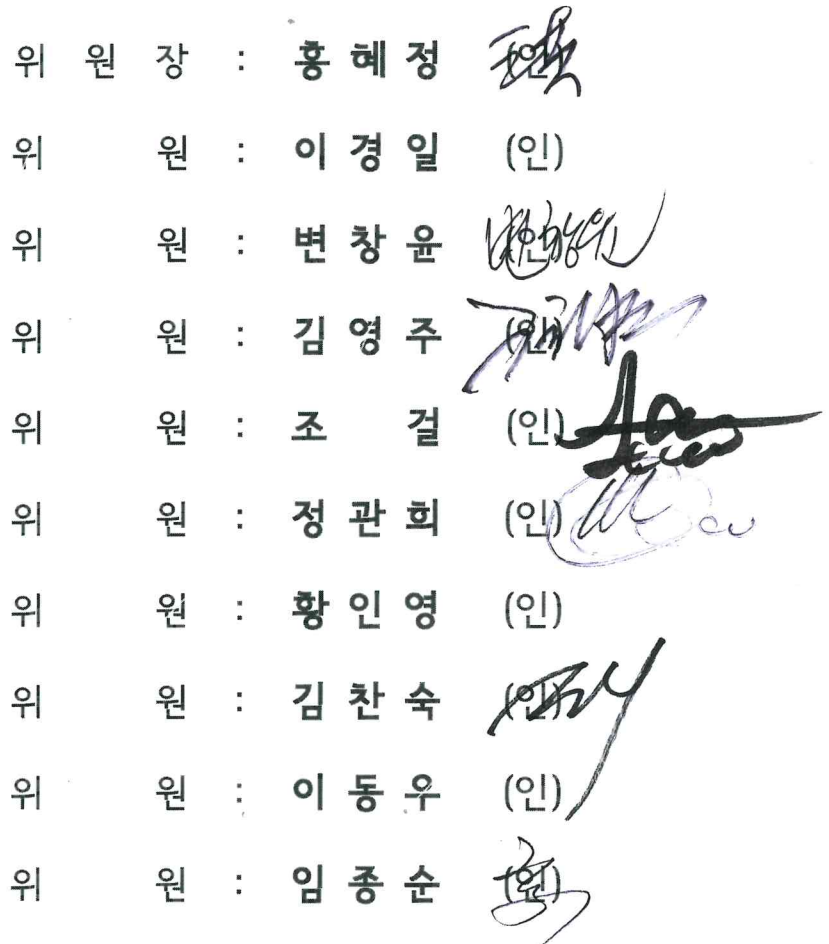 위 원 장 : 홍 혜 정 (인)
위 원 : 이 경 일 (인)
위 원 : 변 창 윤 (인)
위 원 : 김 영 주 (인)
위 원 : 조 걸 (인)
위 원 : 정 관 희 (인)
위 원 : 황 인 영 (인)
위 원 : 김 찬 숙 (인)
위 원 : 이 동 우 (인)
위 원 : 임 종 순 (인)